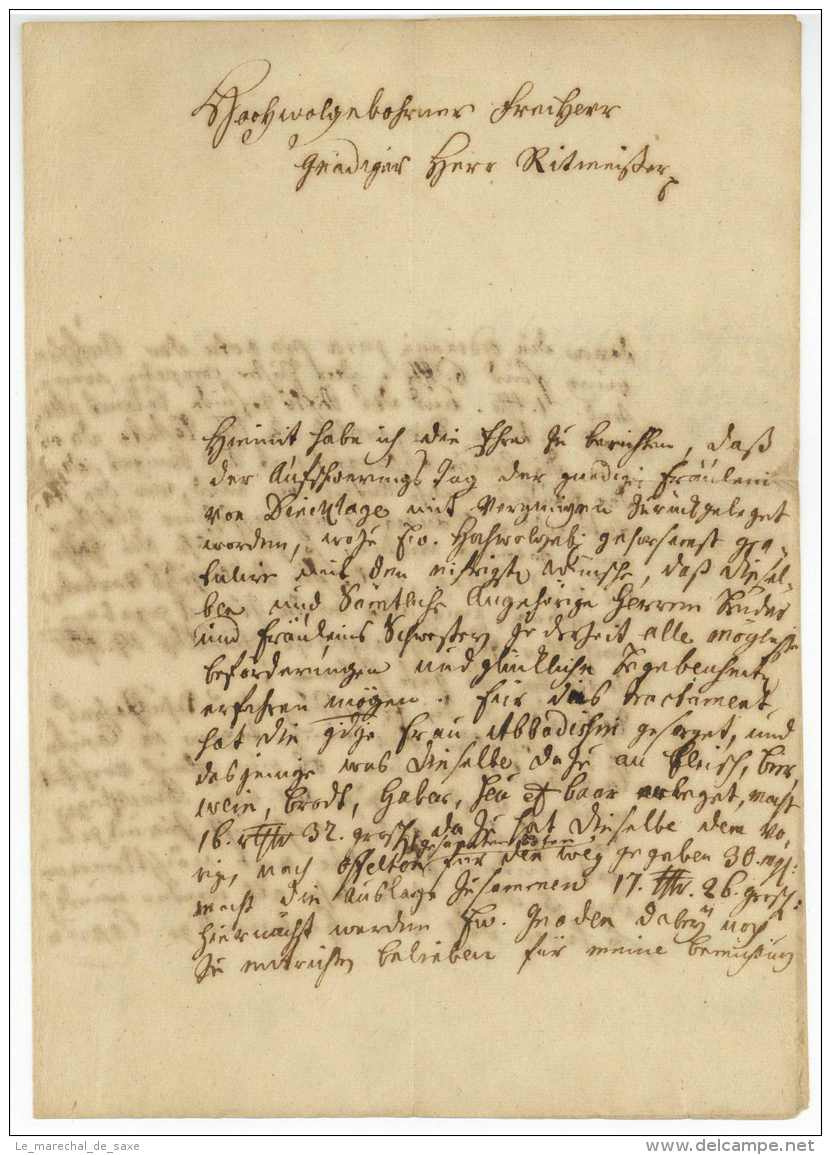 Hochwolgebohrner FreiHerr
Gnädiger Herr Ritmeister
Hiemit habe ich die Ehre zu berichten, daß
der Aufschwerungs Tag der gnedig: Fräulein
von Dincklage mit Vergnügen zurückgeleget
worden, wozu Ew. Hochwolgeb: gehorsamst gra-
tulire mit den eifrigste Wunsche, daß diesel-
ben und Sämtliche Angehörige Herren Brüder
und Fräuleins Schwestern jederzeit alle mögliche
beförderungen und glückliche Begebenheit
erfahren mögen. Für das tractament
hat die gdge Frau Abbadissin gesorget, und
dasjenige was dieselbe dazu an fleisch, bier,
wein, brodt, Haber, Heu et baar ausleget, macht
16. rthlr 32. grosch, dazu hat dieselbe dem vo-
rig, nach gesandten boten
für den weg gegeben 30. mgl:
macht die Auslage zusammen 17. rthlr. 26. grosch:
Hiernächst werden Ew. Gnaden dabey noch
zu entrichten belieben für meine bemühung
Le_marechal_de_saxe
www.delcampe.net